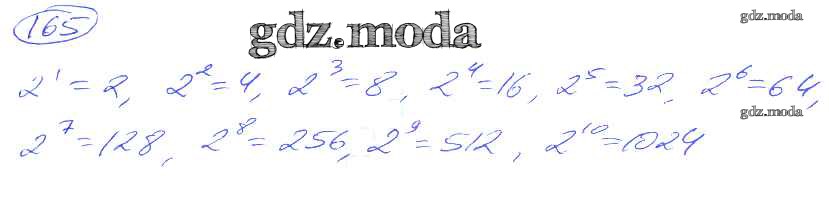 165 gdz.moda gdz.moda
2¹ = 2, 2² = 4, 2³ = 8, 2⁴ = 16, 2⁵ = 32, 2⁶ = 64,
gdz.moda
2⁷ = 128, 2⁸ = 256, 2⁹ = 512, 2¹⁰ = 1024